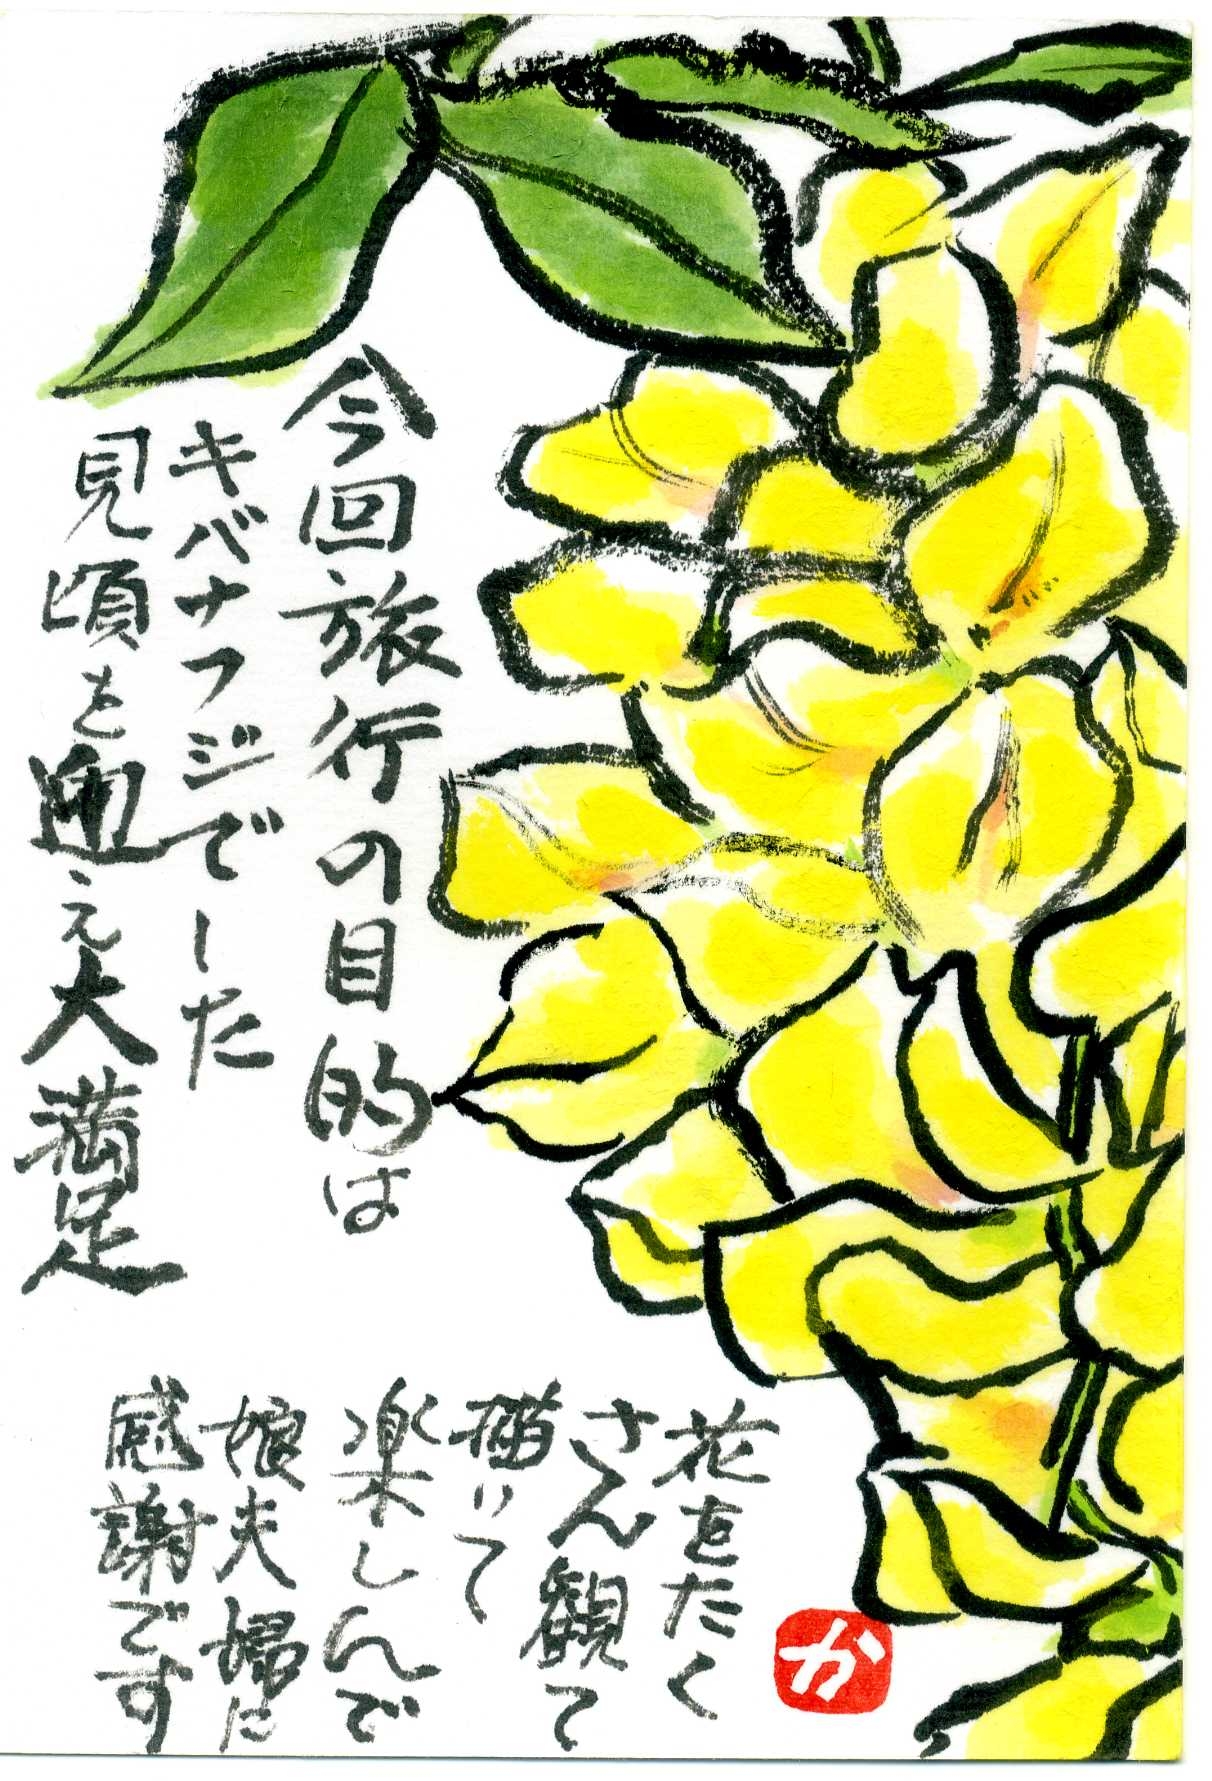 今回旅行の目的は
キバナフジでした
見頃を迎え大満足
花をたく
さん観て
描いて
楽しんで
娘夫婦に
感謝です
か